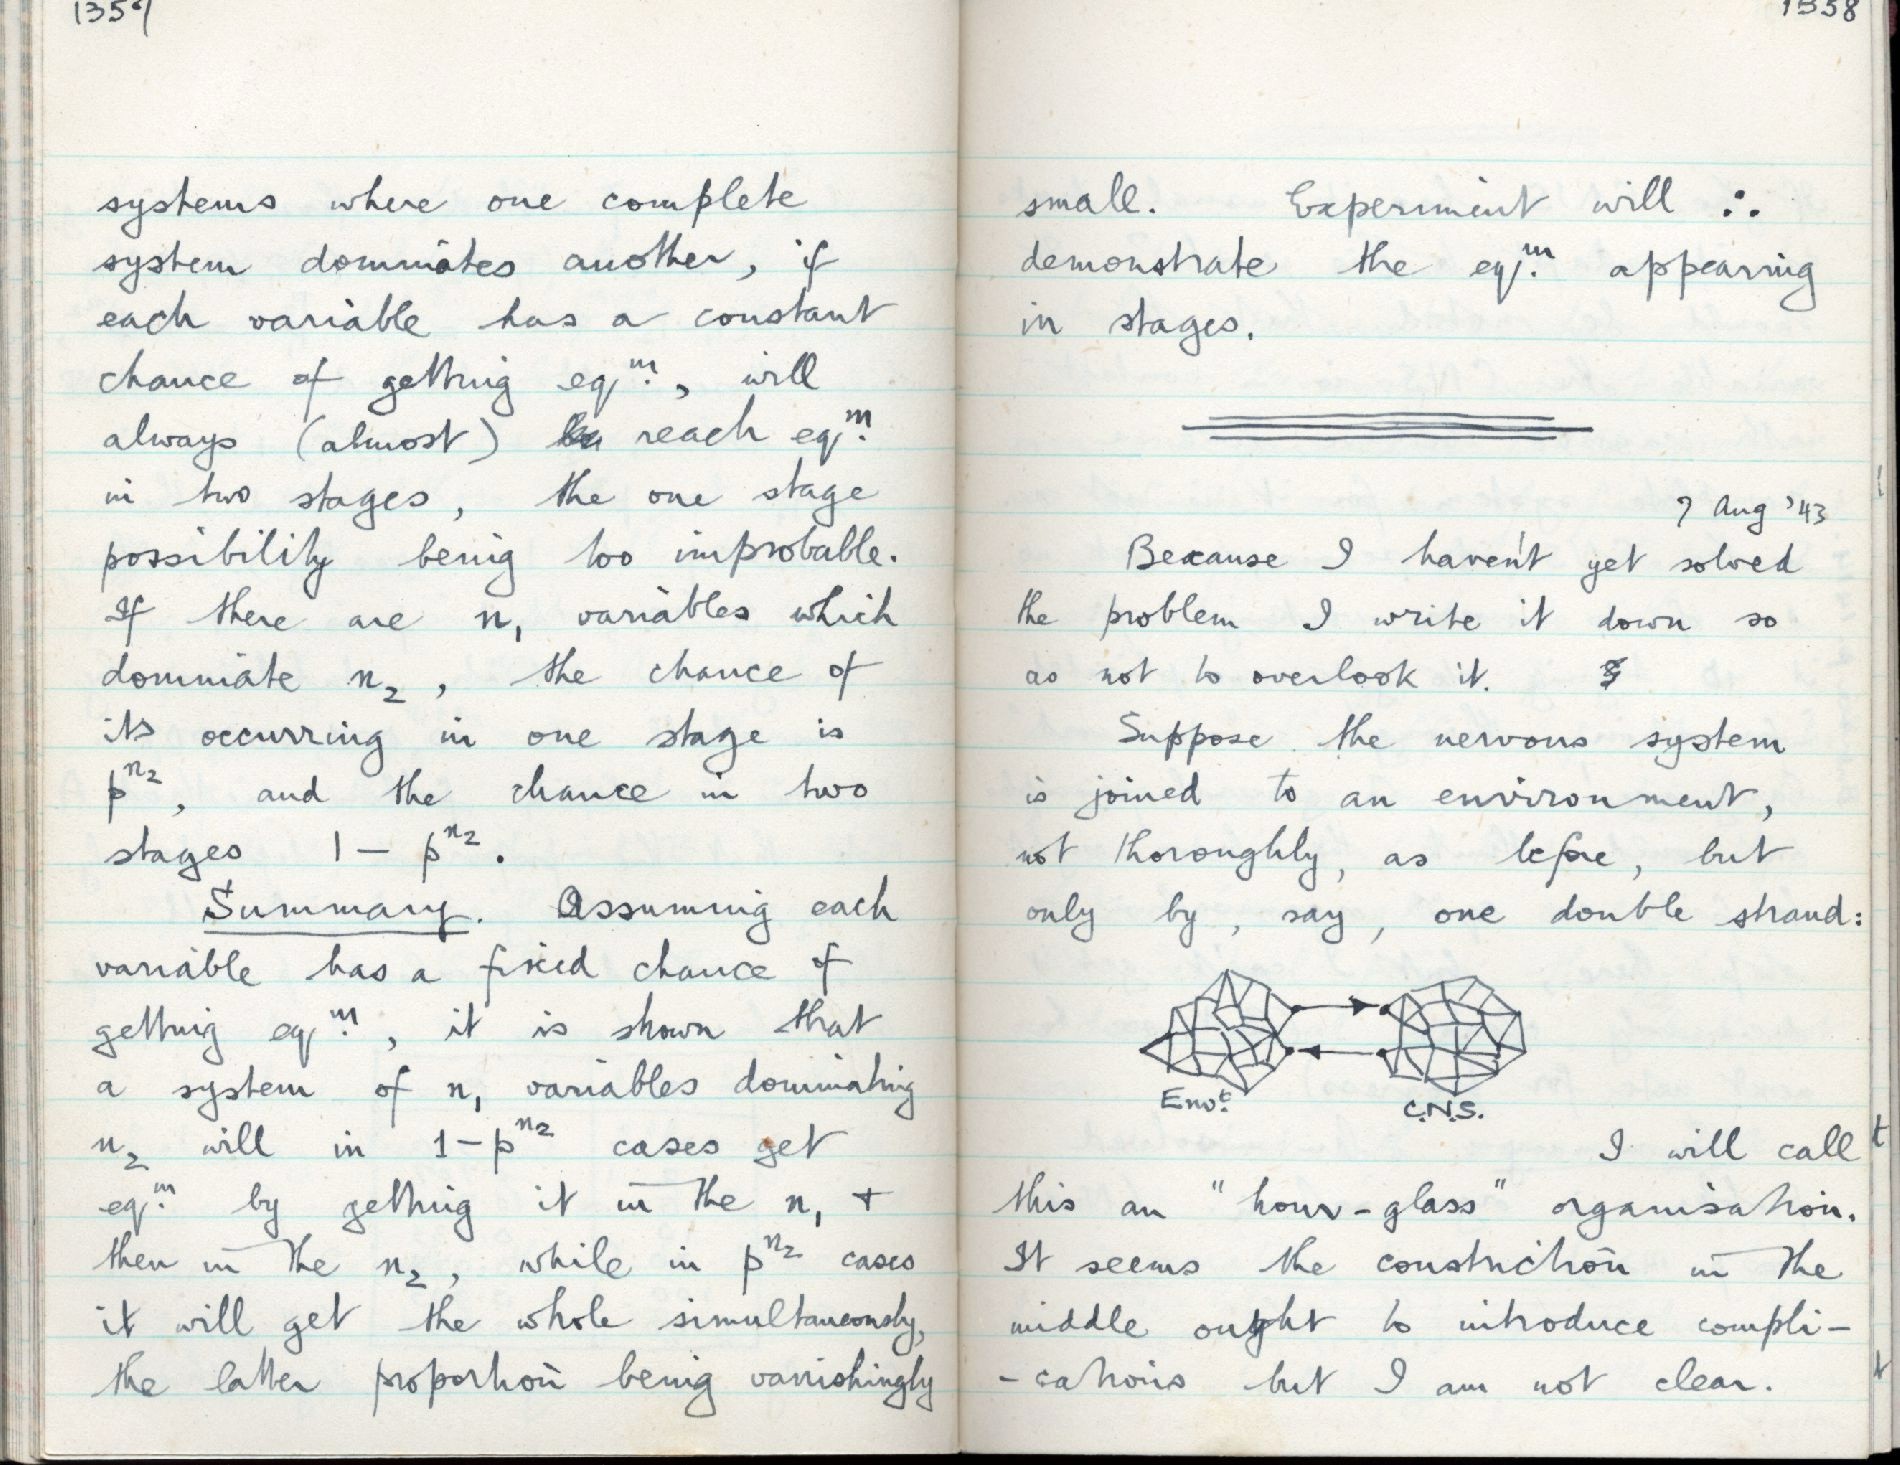 1357
systems where one complete
system dominates another, if
each variable has a constant
chance of getting eqm., will
always (almost) reach eqm.
in two stages, the one stage
possibility being too improbable.
If there are n₁ variables which
dominate n₂, the chance of
its occurring in one stage is
p^n₂, and the chance in two
stages 1 – p^n₂.
Summary. Assuming each
variable has a fixed chance of
getting eqm., it is shown that
a system of n₁ variables dominating
n₂ will in 1–p^n₂ cases get
eqm. by getting it in the n₁ +
then in the n₂, while in p^n₂ cases
it will get the whole simultaneously,
the latter proportion being vanishingly
1358
small. Experiment will ∴
demonstrate the eqm. appearing
in stages.
7 Aug '43
Because I haven't yet solved
the problem I write it down so
as not to overlook it.
Suppose the nervous system
is joined to an environment,
not thoroughly, as before, but
only by, say, one double strand:
Envt.
C.N.S.
I will call
this an "hour-glass" organisation.
It seems the constriction in the
middle ought to introduce compli-
-cations but I am not clear.